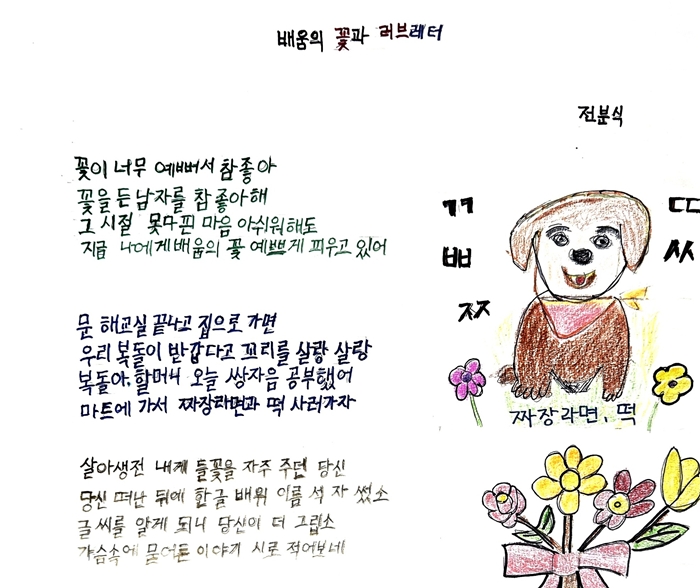 배움의 꽃과 러브레터
전분식
꽃이 너무 예뻐서 참좋아
꽃을 든 남자를 참 좋아해
그 시절 못다핀 마음 아쉬워해도
지금 나에게 배움의 꽃 예쁘게 피우고 있어
문해교실 끝나고 집으로 가면
우리 복돌이 반갑다고 꼬리를 살랑 살랑
복돌아, 할머니 오늘 쌍자음 공부했어
마트에 가서 짜장라면과 떡 사러가자
살아생전 내게 들꽃을 자주 주던 당신
당신 떠난 뒤에 한글 배워 이름 석 자 썼소
글씨를 알게 되니 당신이 더 그립소
가슴속에 묻어둔 이야기 시로 적어보네
ㄲ ㄸ
ㅃ ㅆ
ㅉ
짜장라면, 떡